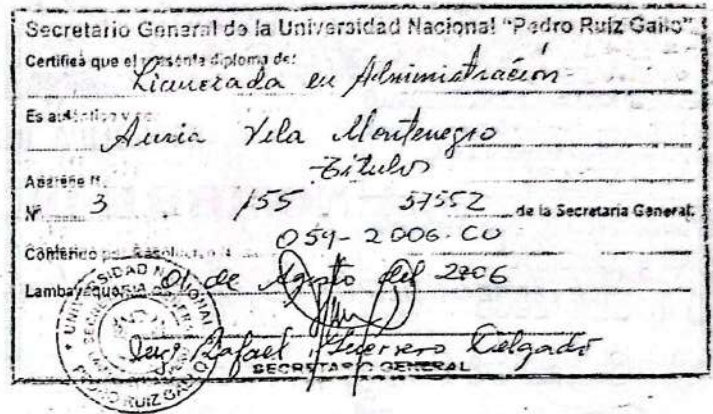 Secretario General de la Universidad Nacional "Pedro Ruiz Gallo"
Certifica que el presente diploma de:
Licenciada en Administración
Es auténtico y
Vela Montenegro
Títulos
Nº 3 155 57552 de la Secretaria General.
Conferido por Resolución N. 054-2006-CU
Lambayeque, 01 de Agosto del 2006
Rafael Guerrero Delgado
SECRETARIO GENERAL
PEDRO RUIZ GALLO